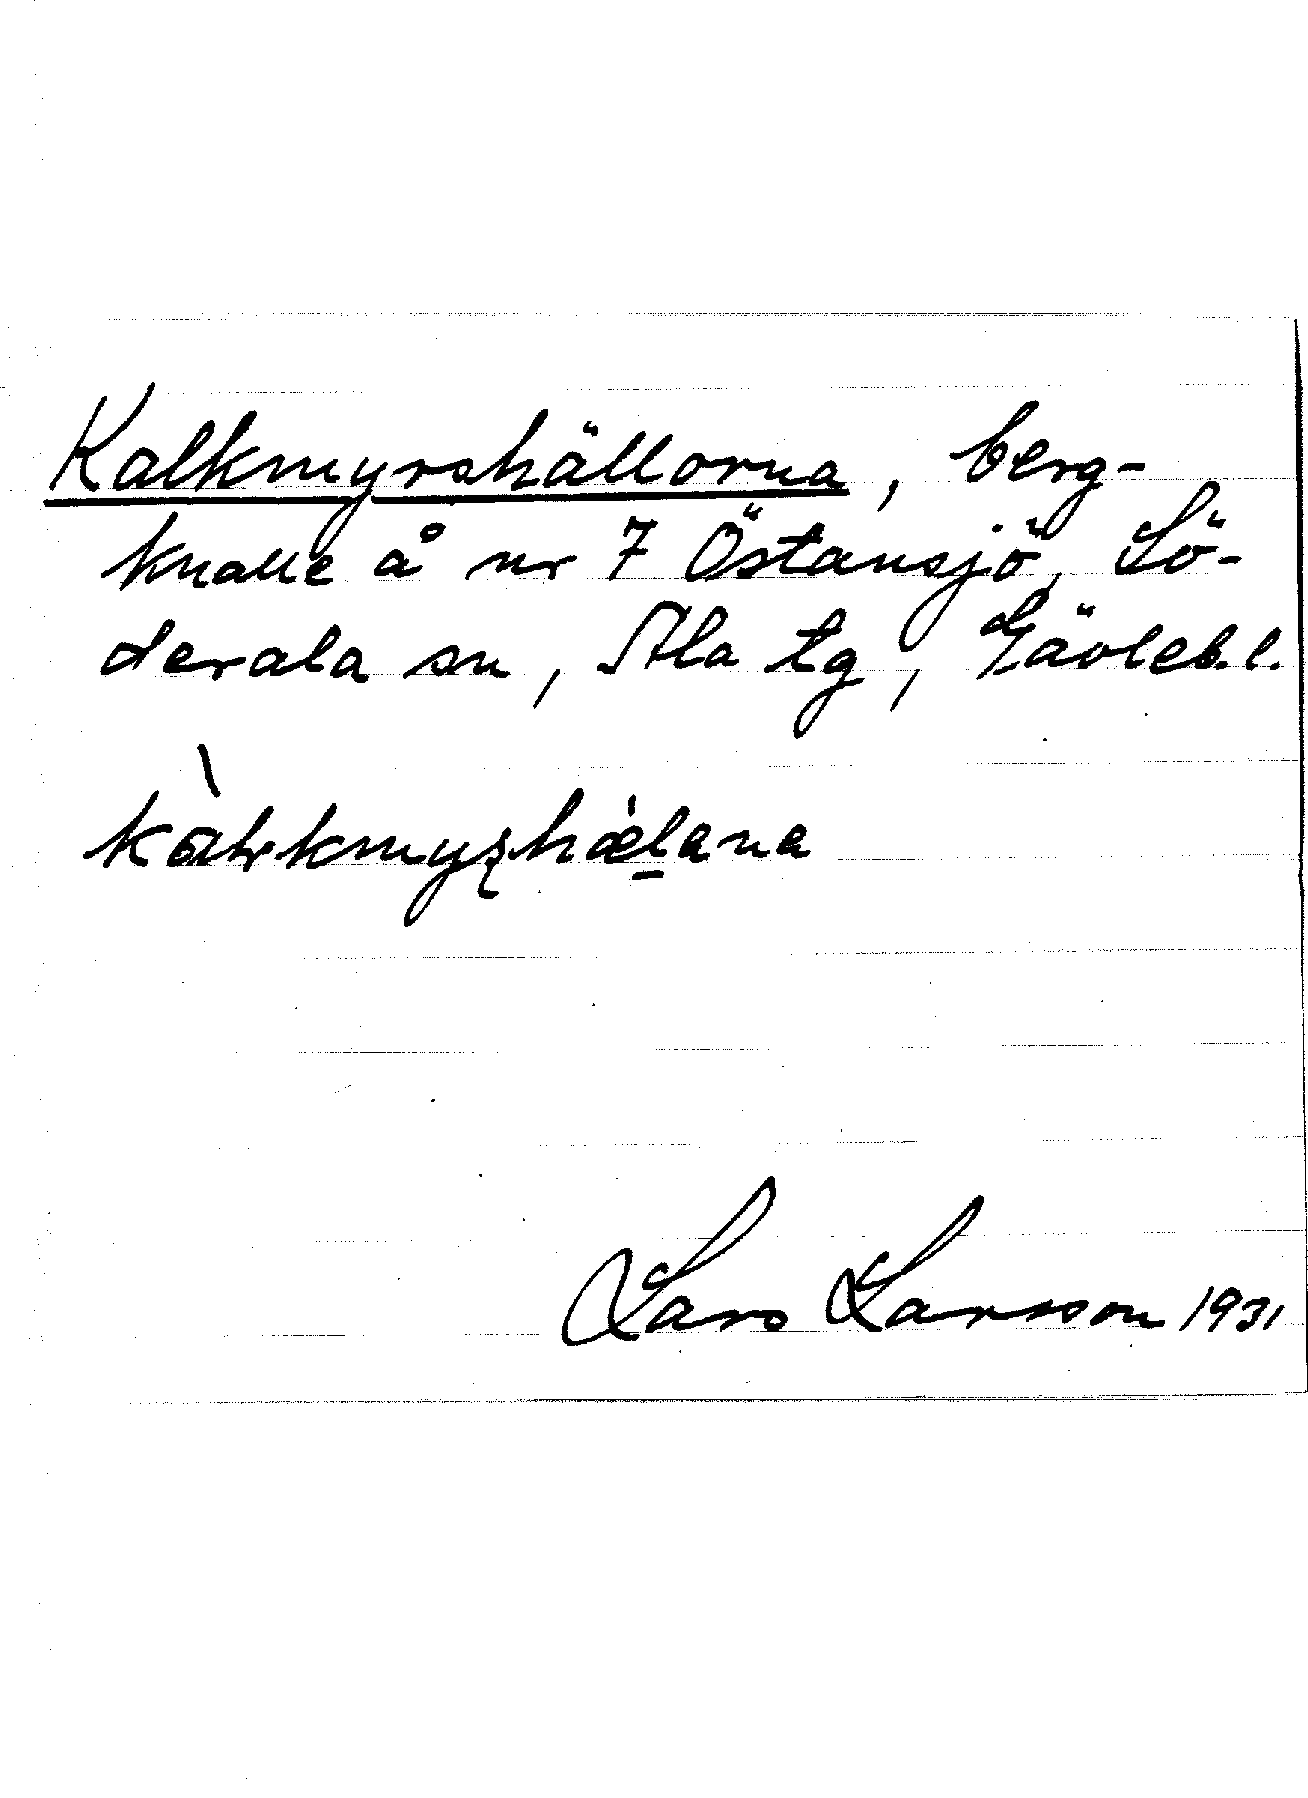 Kalkmyrshällorna, berg-
knalle å nr 7 Östansjö, Sö-
derala sn, Ala tg, Gävleb.l.
Lars Larsson 1931